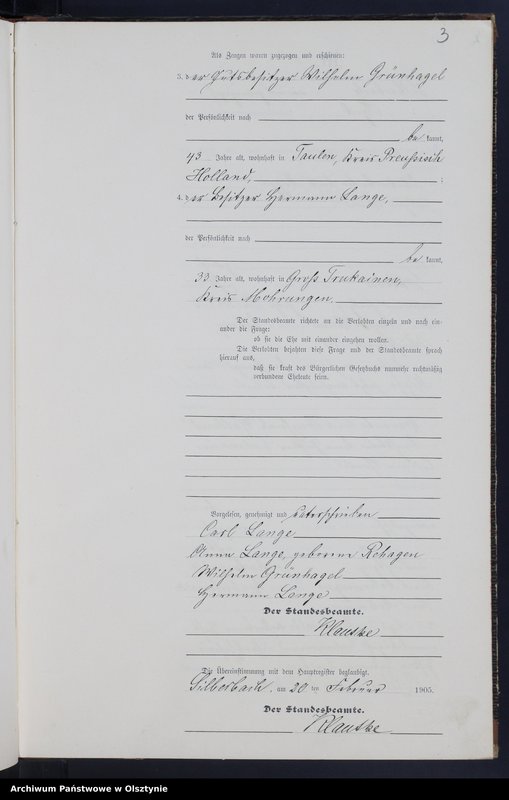 3
Als Zeugen waren zugezogen und erschienen:
3. der Gutsbesitzer Wilhelm Grünhagel
der Persönlichkeit nach
be kannt,
43 Jahre alt, wohnhaft in Taulen, Kreis Preußisch
Holland.
4. der Besitzer Hermann Lange,
der Persönlichkeit nach
be kannt,
33 Jahre alt, wohnhaft in Groß Trukainen,
Kreis Mohrungen.
Der Standesbeamte richtete an die Verlobten einzeln und nach ein-
ander die Frage:
ob sie die Ehe mit einander eingehen wollen.
Die Verlobten bejahten diese Frage und der Standesbeamte sprach
hierauf aus,
daß sie kraft des Bürgerlichen Gesetzbuchs nunmehr rechtmäßig
verbundene Eheleute seien.
Vorgelesen, genehmigt und unterschrieben
Carl Lange
Anna Lange, geborene Rehagen
Wilhelm Grünhagel
Hermann Lange
Der Standesbeamte.
Klauske
Die Übereinstimmung mit dem Hauptregister beglaubigt.
Silberbach, am 20 ten Februar 1905.
Der Standesbeamte.
Klauske
Archiwum Państwowe w Olsztynie